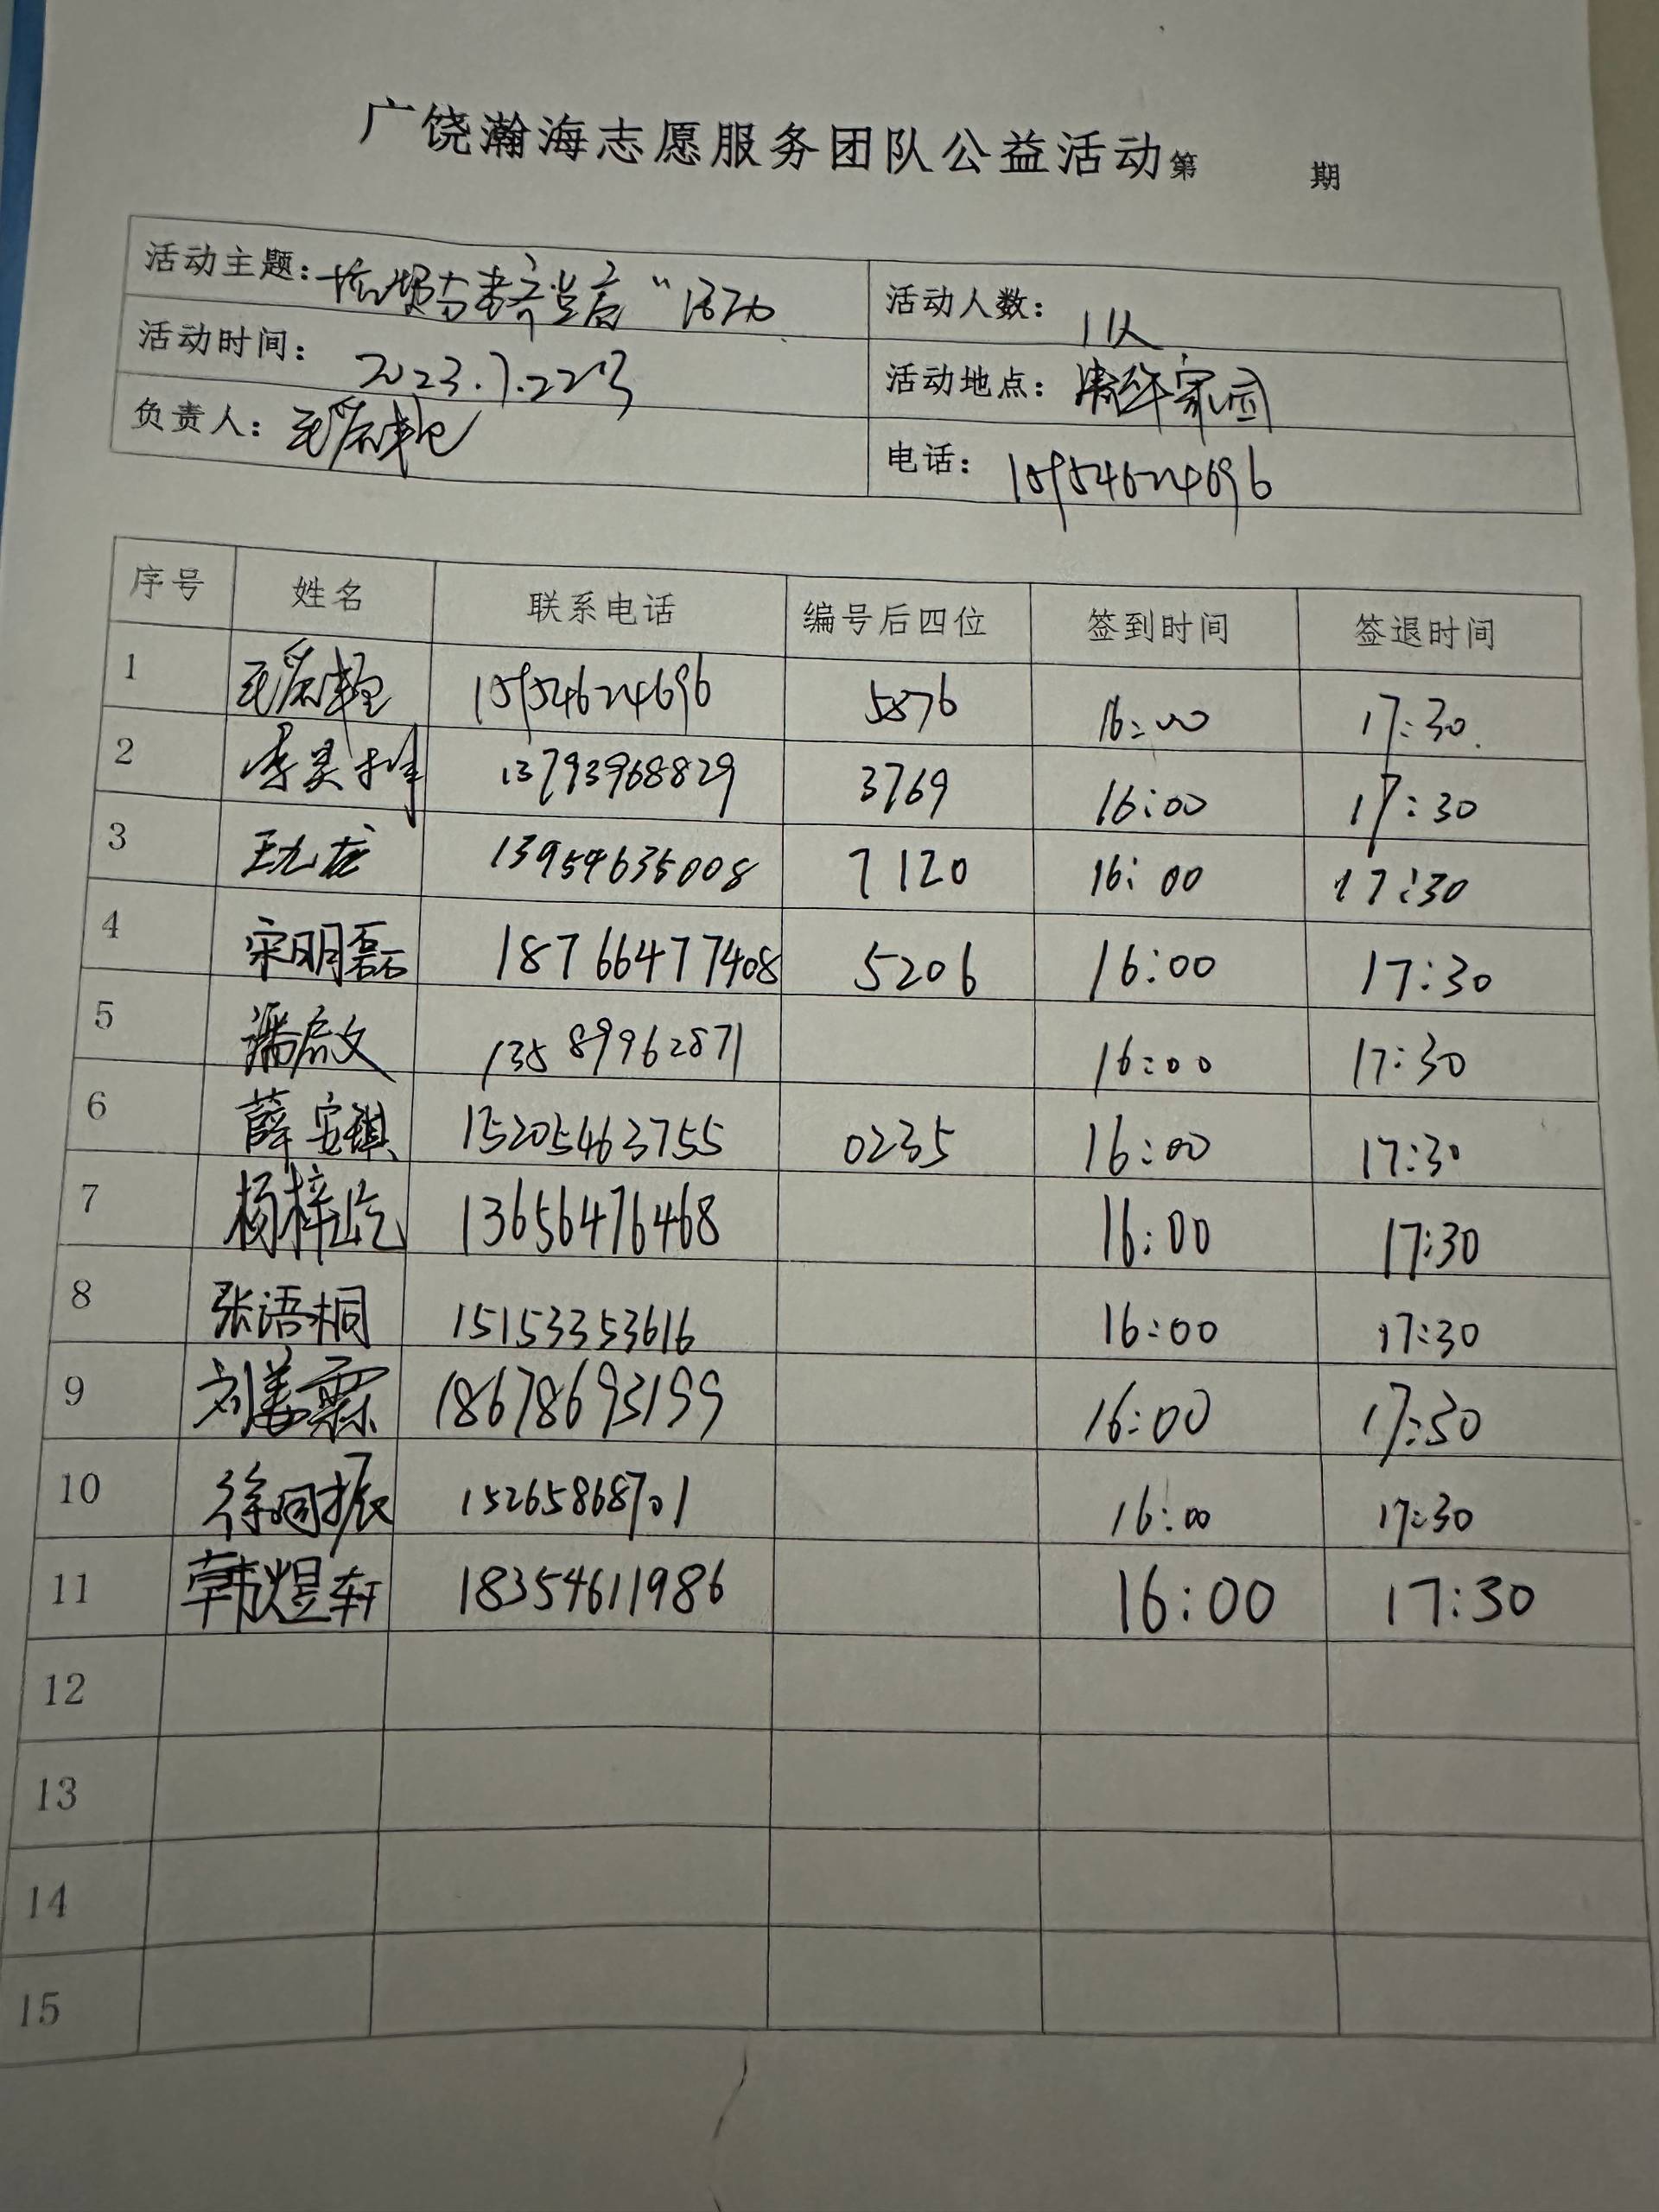 广饶瀚海志愿服务团队公益活动第 期
活动主题: 活动
活动人数: 11人
活动时间: 2023.7.22号
活动地点: 清华家园
负责人:
电话: 15954624696
序号 姓名 联系电话 编号后四位 签到时间 签退时间
1 15954624696 5876 16:00 17:30
2 李昊峰 13793968829 3769 16:00 17:30
3 王九龙 13954635008 7120 16:00 17:30
4 宋明磊 18766477408 5206 16:00 17:30
5 潘启文 13589962871 16:00 17:30
6 薛安琪 15205463755 0235 16:00 17:30
7 杨梓屹 13656476468 16:00 17:30
8 张语桐 15153353616 16:00 17:30
9 刘姜霖 18678693199 16:00 17:30
10 徐同振 15265868701 16:00 17:30
11 韩煜轩 18354611986 16:00 17:30
12
13
14
15